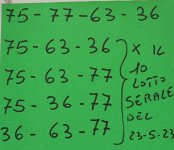 75 - 77 - 63 - 36
75 - 63 - 36
75 - 63 - 77
75 - 36 - 77
36 - 63 - 77
X IL
10
LOTTO
SERALE
DEL
23-5-23